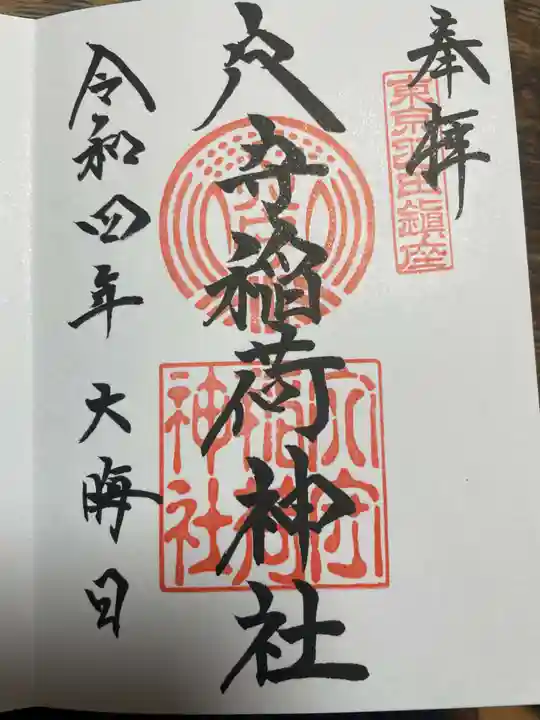 奉拝
東京羽田鎮座
穴守稲荷神社
穴守稲荷神社
令和四年大晦日